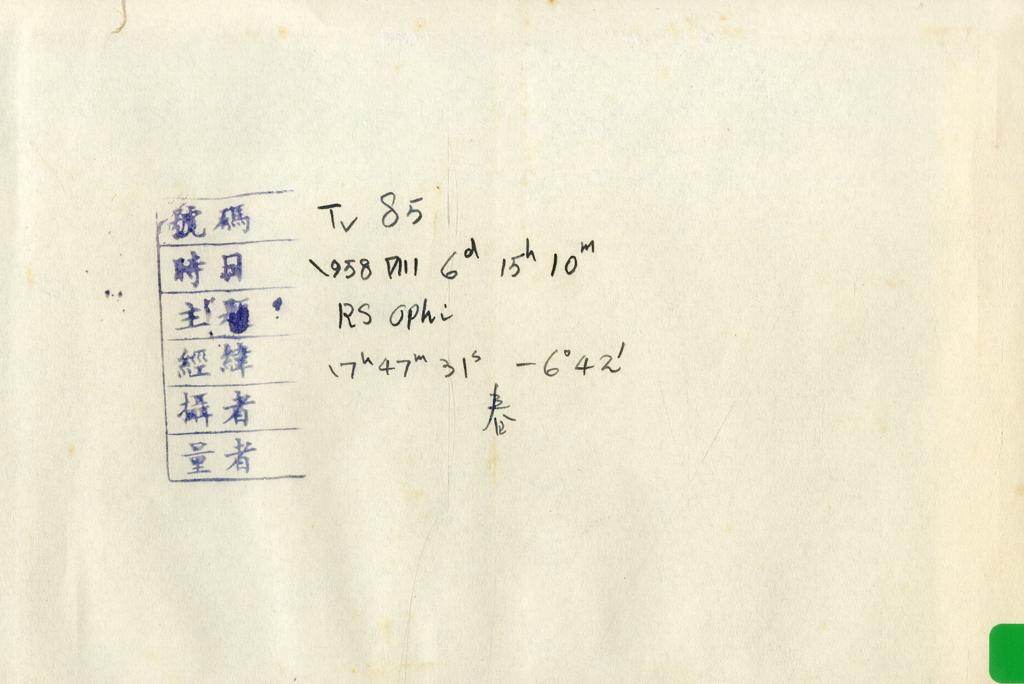 號碼 Tv 85
時日 1958 VIII 6d 15h 10m
主題 RS Ophi
經緯 17h 47m 31s -6°42'
攝者
量者